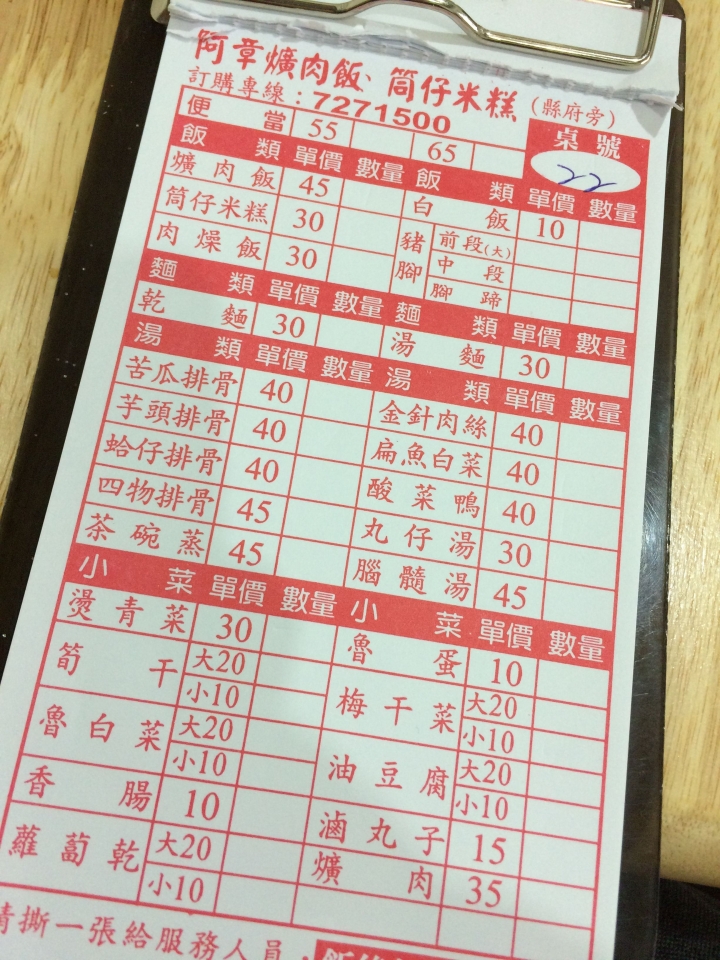 阿章爌肉飯、筒仔米糕（縣府旁）
訂購專線：7271500
便當 55 65 桌號
22
飯類 單價 數量 飯類 單價 數量
爌肉飯 45 白飯 10
筒仔米糕 30 豬腳 前段(大)
中段
肉燥飯 30 腳蹄
麵類 單價 數量 麵類 單價 數量
乾麵 30 湯麵 30
湯類 單價 數量 湯類 單價 數量
苦瓜排骨 40 金針肉絲 40
芋頭排骨 40 扁魚白菜 40
蛤仔排骨 40 酸菜鴨 40
四物排骨 45 丸仔湯 30
茶碗蒸 45 腦髓湯 45
小菜 單價 數量 小菜 單價 數量
燙青菜 30 魯蛋 10
筍干 大20 梅干菜 大20
小10 小10
魯白菜 大20 油豆腐 大20
小10 小10
香腸 10 滷丸子 15
蘿蔔乾 大20 爌肉 35
小10
請撕一張給服務人員，